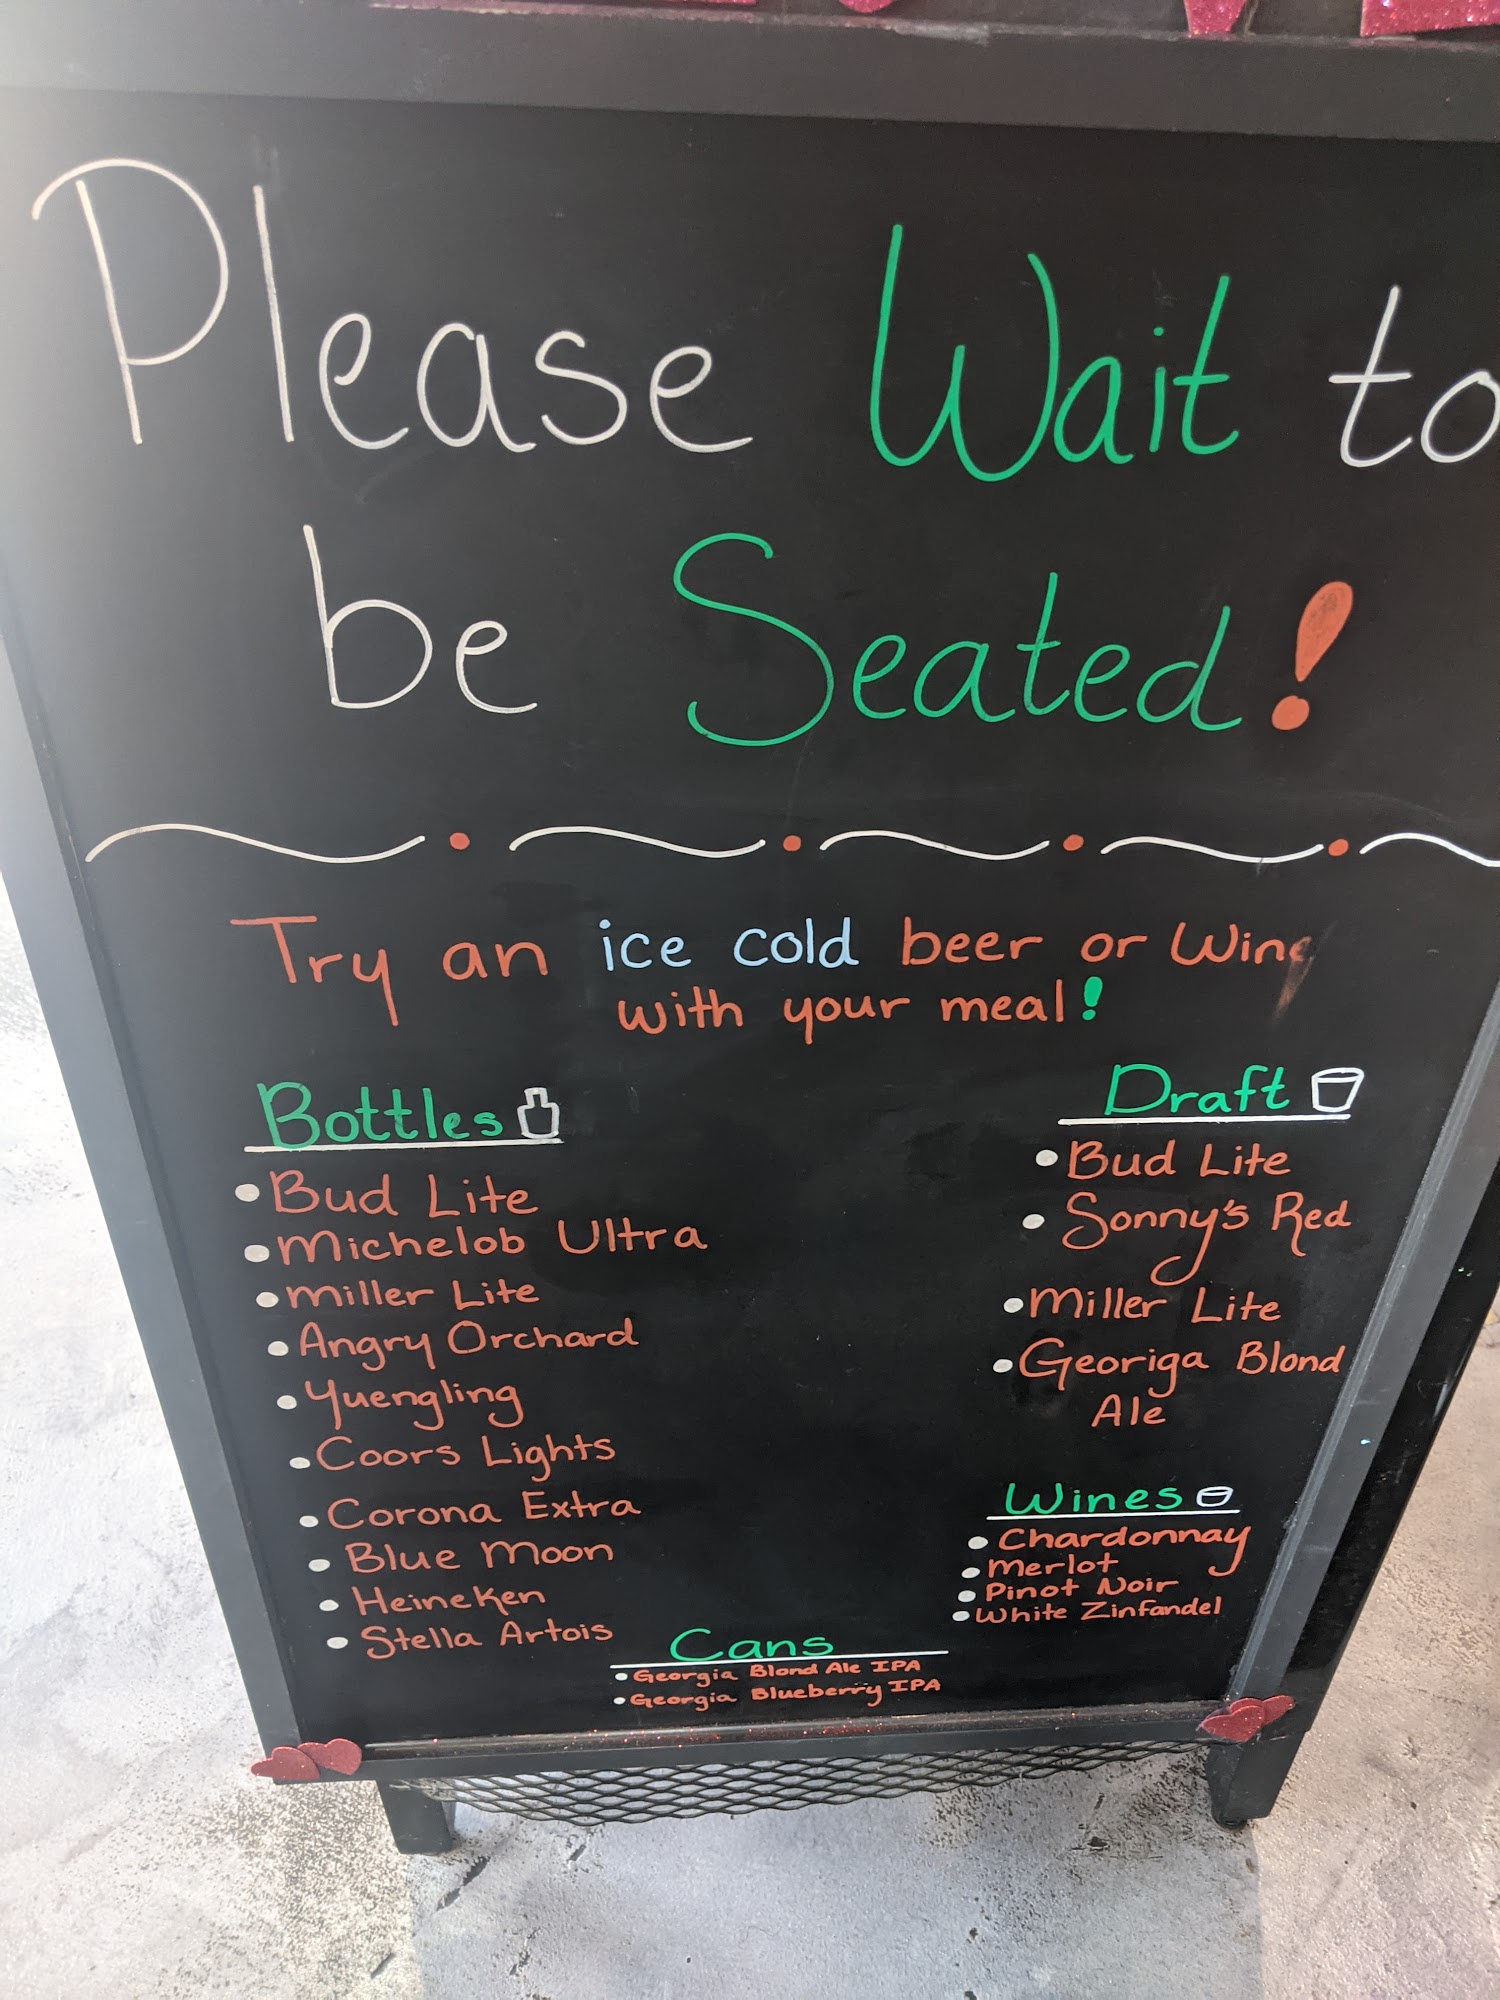 Please Wait to
be Seated!
Try an ice cold beer or Wine
with your meal!
Bottles
Bud Lite
Michelob Ultra
Miller Lite
Angry Orchard
Yuengling
Coors Lights
Corona Extra
Blue Moon
Heineken
Stella Artois
Draft
Bud Lite
Sonny's Red
Miller Lite
Georiga Blond
Ale
Wines
Chardonnay
Merlot
Pinot Noir
White Zinfandel
Cans
Georgia Blond Ale IPA
Georgia Blueberry IPA